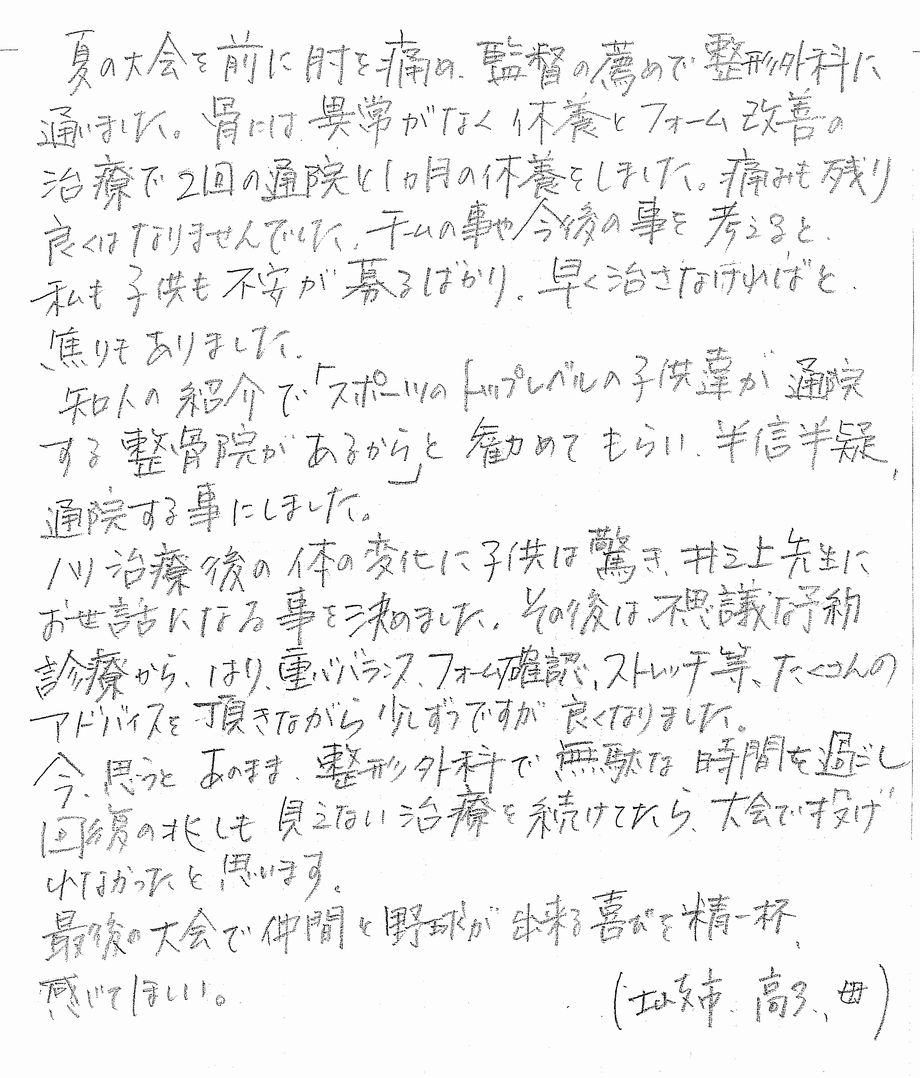 夏の大会を前に肘を痛め、監督の薦めで整形外科に
通いました。骨には異常がなく休養とフォーム改善の
治療で2回の通院と1ヵ月の休養をしました。痛みも残り
良くはなりませんでした。チームの事や今後の事を考えると、
私も子供も不安が募るばかり。早く治さなければと、
焦りもありました。
知人の紹介で「スポーツのトップレベルの子供達が通院
する整骨院があるから」と勧めてもらい、半信半疑、
通院する事にしました。
ハリ治療後の体の変化に子供は驚き、井之上先生に
お世話になる事を決めました。その後は、不思議な予約
診療から、はり、重心バランス、フォーム確認、ストレッチ等、たくさんの
アドバイスを頂きながら少しずつですが良くなりました。
今、思うとあのまま、整形外科で無駄な時間を過ごし
回復の兆しも見えない治療を続けてたら、大会で投げ
れなかったと思います。
最後の大会で仲間と野球が出来る喜びを精一杯、
感じてほしい。
(土岐市、高3、母)